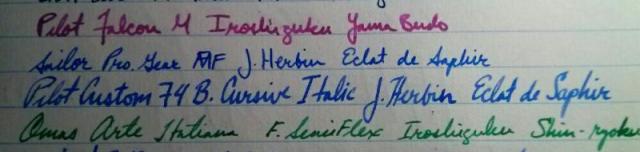 Pilot Falcon M Iroshizuku Yama Budo
Sailor Pro. Gear MF J. Herbin Eclat de Saphir
Pilot Custom 74 B. Cursive Italic J. Herbin Eclat de Saphir
Omas Arte Italiana F. SemiFlex Iroshizuku Shin-ryoku